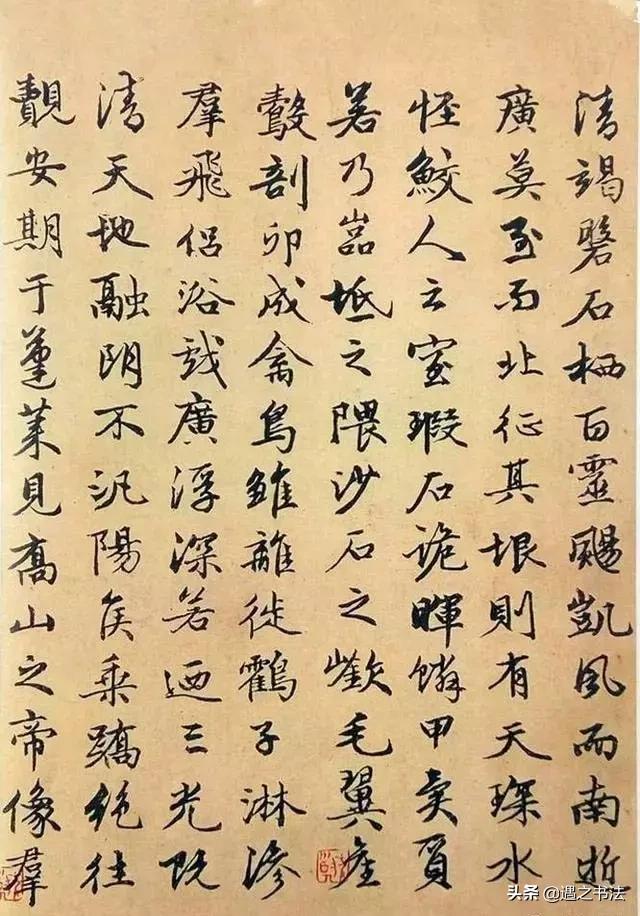 清竭磐石栖百靈颺凱風而南逝
廣莫至而北征其垠則有天琛水
怪鮫人之室瑕石詭暉鱗甲異質
若乃嵓坻之隈沙石之嶔毛翼產
鷇剖卵成禽鳥雛離徙鶴子淋滲
羣飛侶浴戲廣浮深若迺三光既
清天地融朗不汎陽侯乘蹻絕往
覿安期于蓬萊見喬山之帝像羣
头条 @遇之书法